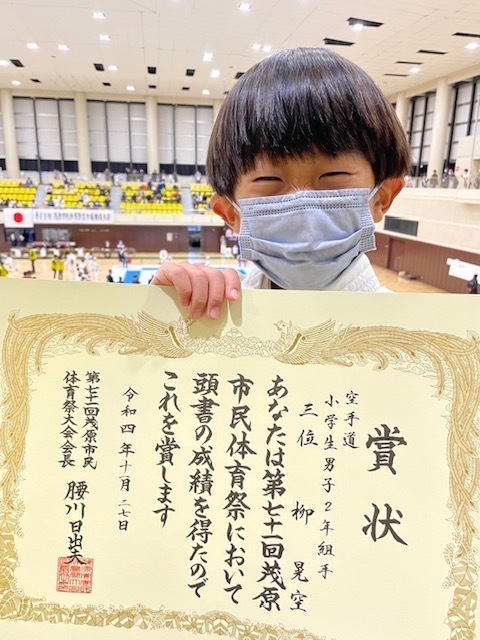 賞状
空手道
小学生男子2年組手
三位 柳晃空
あなたは第七十一回茂原
市民体育祭において
頭書の成績を得たので
これを賞します
令和四年十月二七日
第七十一回茂原市民
体育祭大会会長 腰川日出夫